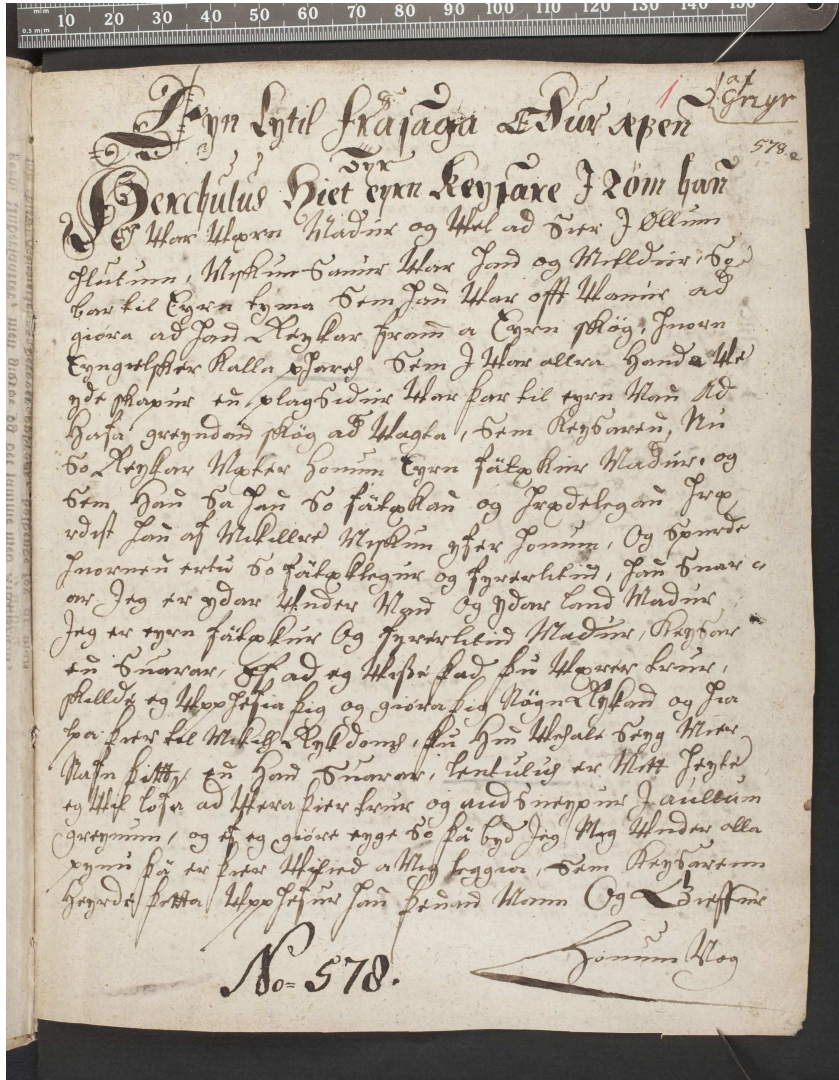 Eyn lytil frásaga Edur æfen
Tyr
Herchulus Hiet eyrn Keysare J Róm han
Var Væn Madur og Vel ad Sier J Øllum
hlutum, Miskunsamur Var han og Milldur, So
bar til Eyrn tyma Sem han Var offt Vanur ad
giøra ad han Reykar framm a Eyrn skóg, huorn
Eyngelsker kalla Sem J Var allra Handa Ve
yde skapur en plagsidur Var þar til eyrn Man Ad
Hafa greyndan skóg ad Vagta, Sem Keysaren, Nu
So Reykar Mæter honum Eyrn fátækur Madur, og
Sem Han Sa han So fátækan og hrædelegan hræ
rdist han af Mikillre Miskun yfer honum, Og Spurde
huornen ertu So fátæklegur og fyrerlitin, han Suar
ar Jeg er ydar Under Man Og ydar land Madur
Jeg er eyrn fátækur Og fyrerlitin Madur, Keysar
en Suarar, Ef ad eg Visse þad þu Værer trur,
skillde eg Upphefia þig og giøra þig Nógu Rykan og hia
lpa þier til Mikils Rykdoms, þu Hin Vesale Seyg Mier
Nafn þitt, en Han Suarar, lentulus er Mitt Heyte
eg Vil lofa ad Vera þier trur og audsueypur J aullum
greynum, og ef eg giøre eyge So þá byd Jeg Mig Under alla
pynu þá er þier Vilied a Mig leggia, Sem Keysarenn
Heyrde þetta Upphefur han þennan Mann Og Gieffur
Honum Nog
No= 578.
1
578